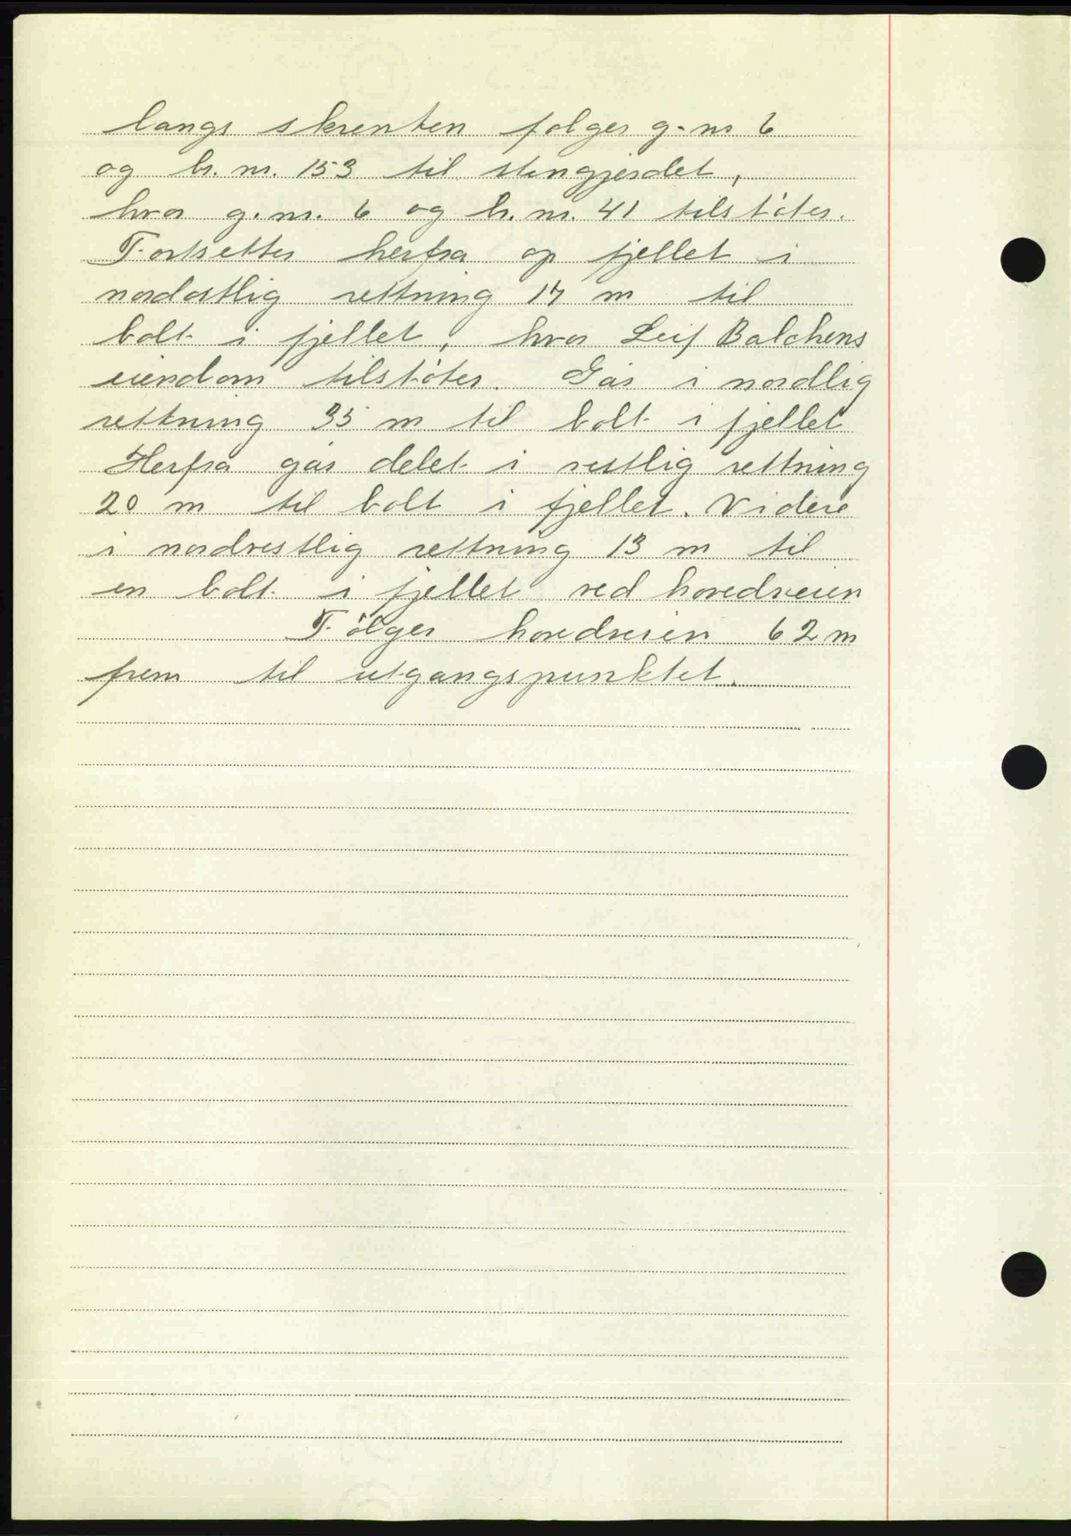 langs skrenten følger g.nr 6
og br. nr. 153 til stengjerdet,
hvor g.nr. 6 og b.nr. 41 tilstöter.
Fortsetter herfra op fjellet i
nordostlig rettning 17 m til
bolt i fjellet, hvor Leif Balchens
eiendom tilstöter. Går i nordlig
rettning 35 m til bolt i fjellet
Herfra går delet i vestlig rettning
20 m til bolt i fjellet. Videre
i nordvestlig rettning 13 m til
en bolt i fjellet ved hovedveien
Fölger hovedveien 62 m
frem til utgangspunktet.